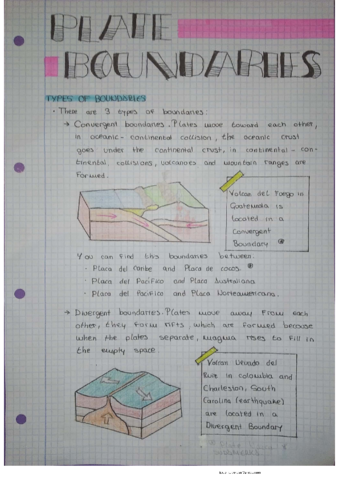 PLATE
BOUNDARIES
TYPES OF BOUNDARIES
· There are 3 types of boundaries:
→ Convergent boundaries. Plates move toward each other,
in oceanic - continental collision, the oceanic crust
goes under the continental crust, in continental - con-
tinental, collisions, volcanoes and mountain ranges are
formed.
Volcan del Fuego in
Guatemala is
located in a
Convergent
Boundary
You can find this boundaries between:
· Placa del Caribe and Placa de cocos.
· Placa del Pacifico and Placa Australiana
· Placa del Pacifico and Placa Norteamericana.
→ Divergent boundaries. Plates move away from each
other, they form rifts, which are formed because
when the plates separate, magma rises to fill in
the empty space
Volcan Nevado del
Ruiz in colombia and
Charleston, South
Carolina (earthquake)
are located in a
Divergent Boundary